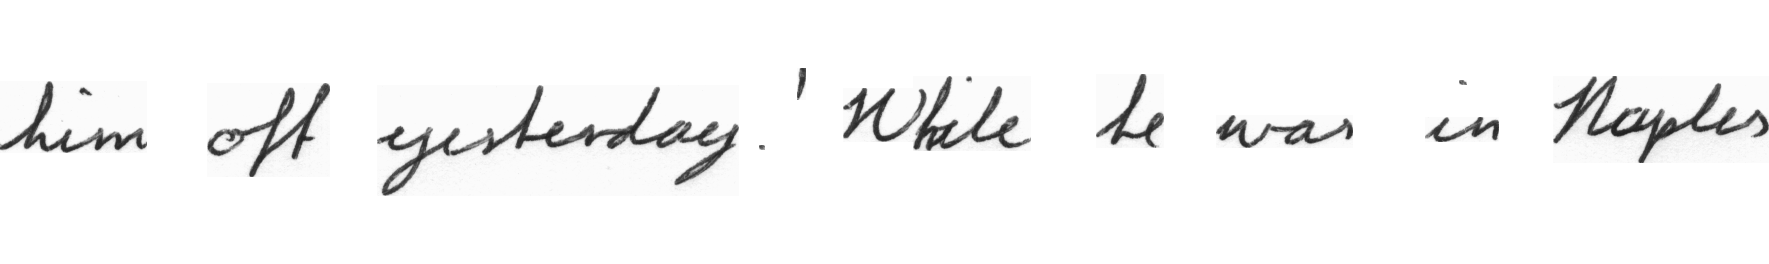 him off yesterday.' While he was in Naples